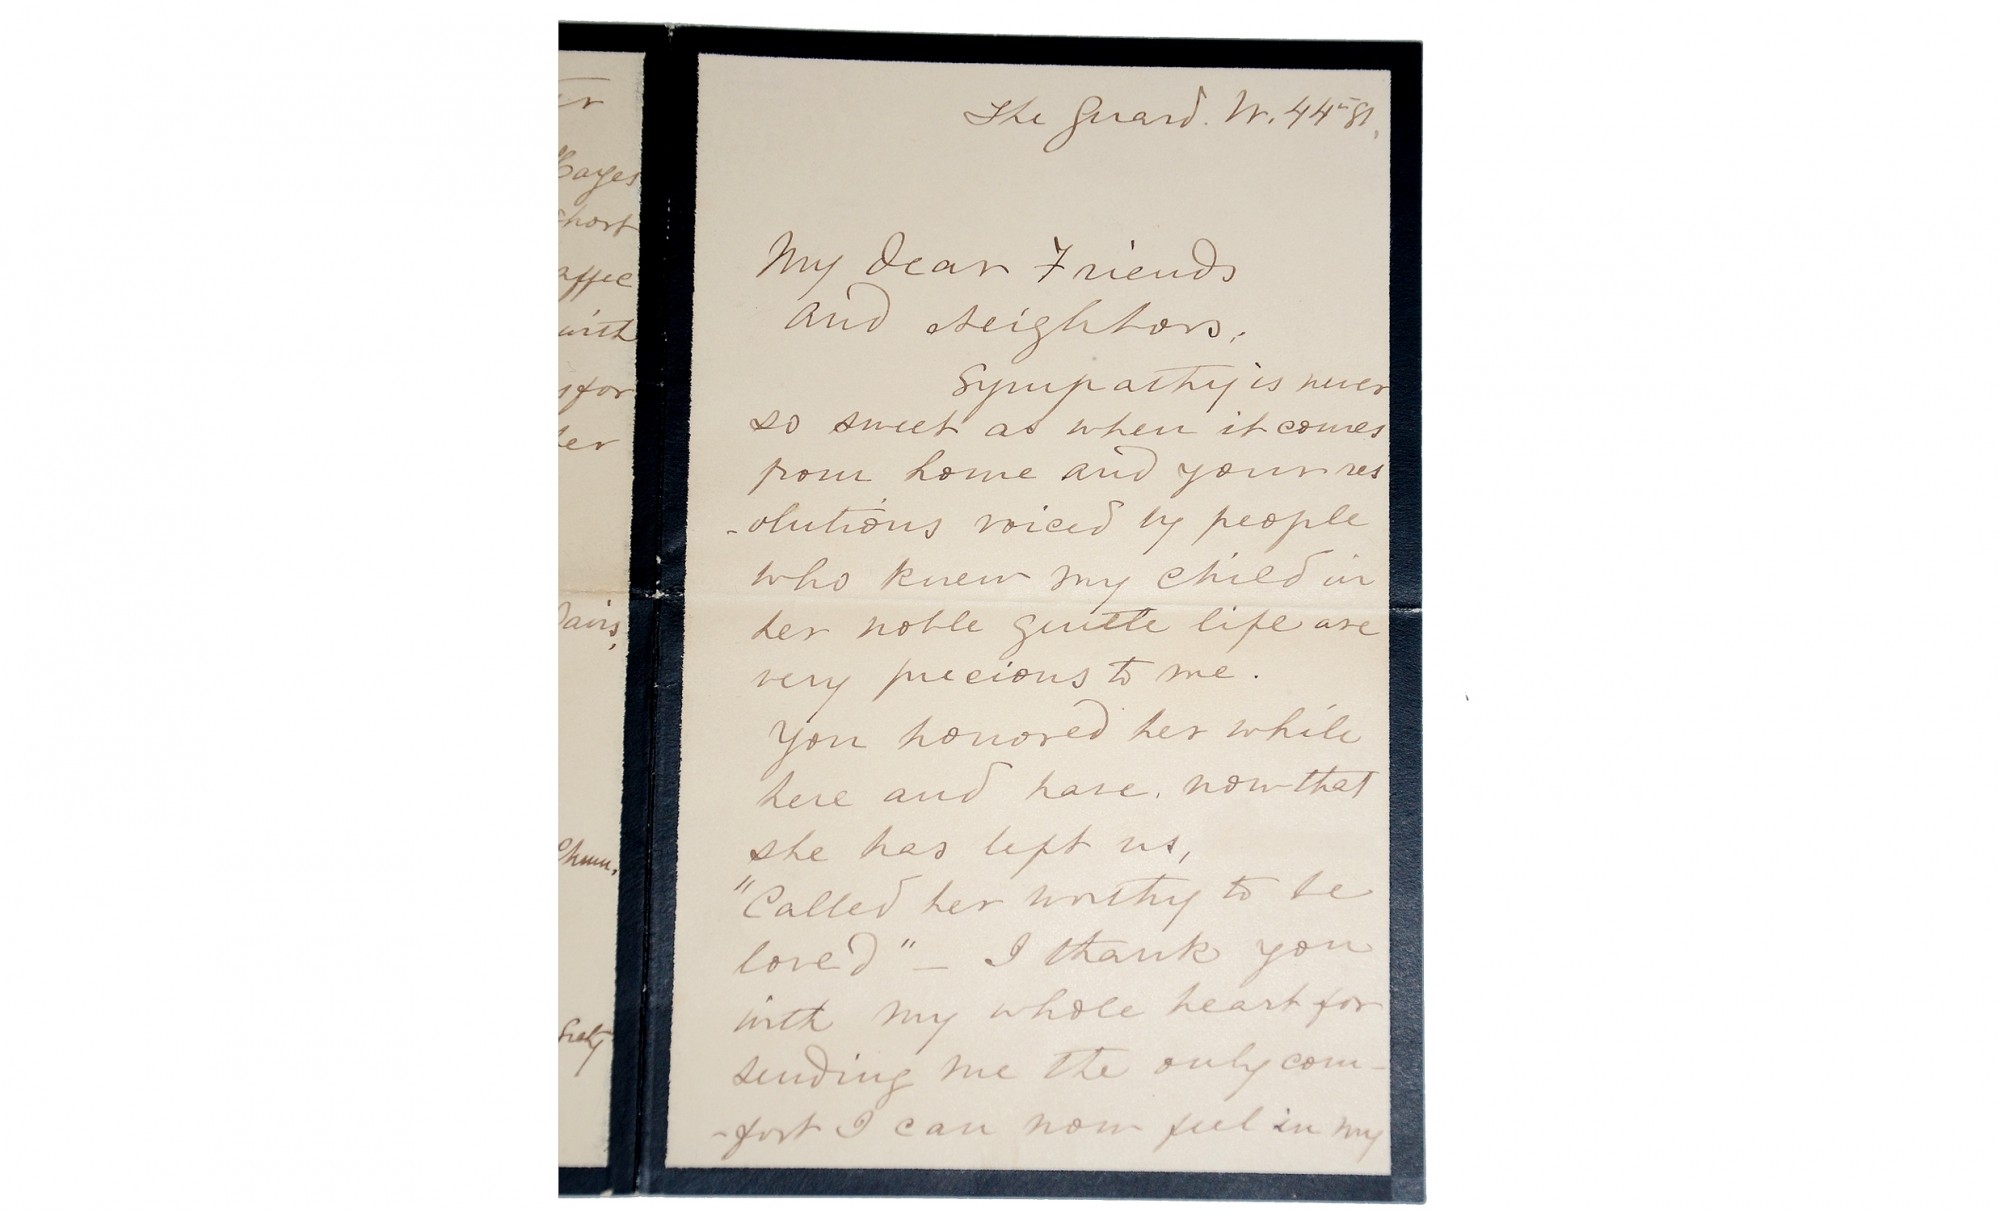 er
Hayes
short
affec
with
for
her
Davis,
Chmn.
Secty
The Gerard. W. 44th St.
My Dear Friends
And Neighbors,
Sympathy is never
so sweet as when it comes
from home and your res
-olutions voiced by people
who knew my child in
her noble gentle life are
very precious to me.
You honored her while
here and have, now that
she has left us,
"Called her worthy to be
loved" — I thank you
with my whole heart for
sending me the only com-
-fort I can now feel in my